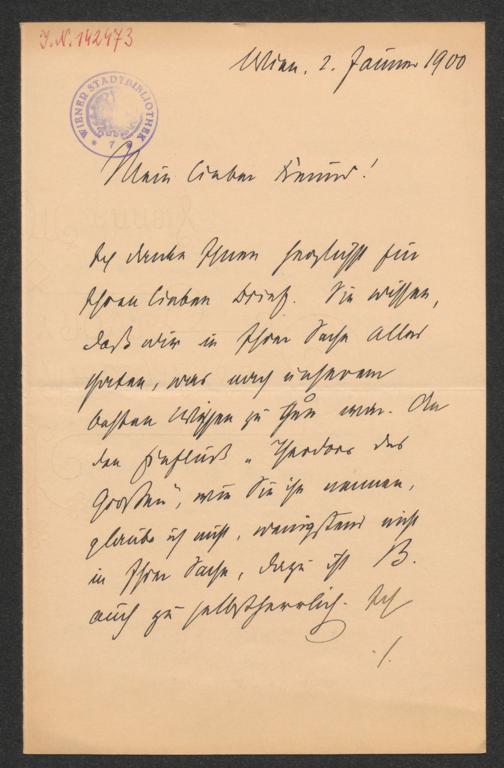 J.N. 142473
WIENER STADTBIBLIOTHEK
Wien, 2. Jänner 1900
Mein lieber Freund!
Ich danke Ihnen herzlichst für
Ihren lieben Brief. Sie wissen,
daß wir in Ihrer Sache Alles
thaten, was nach unserem
besten Wissen zu thun war. An
den Einfluß „Theodors des
Großen", wie Sie ihn nennen,
glaube ich nicht, wenigstens nicht
in Ihrer Sache, dazu ist B.
auch zu selbstherrlich. Ich
./.